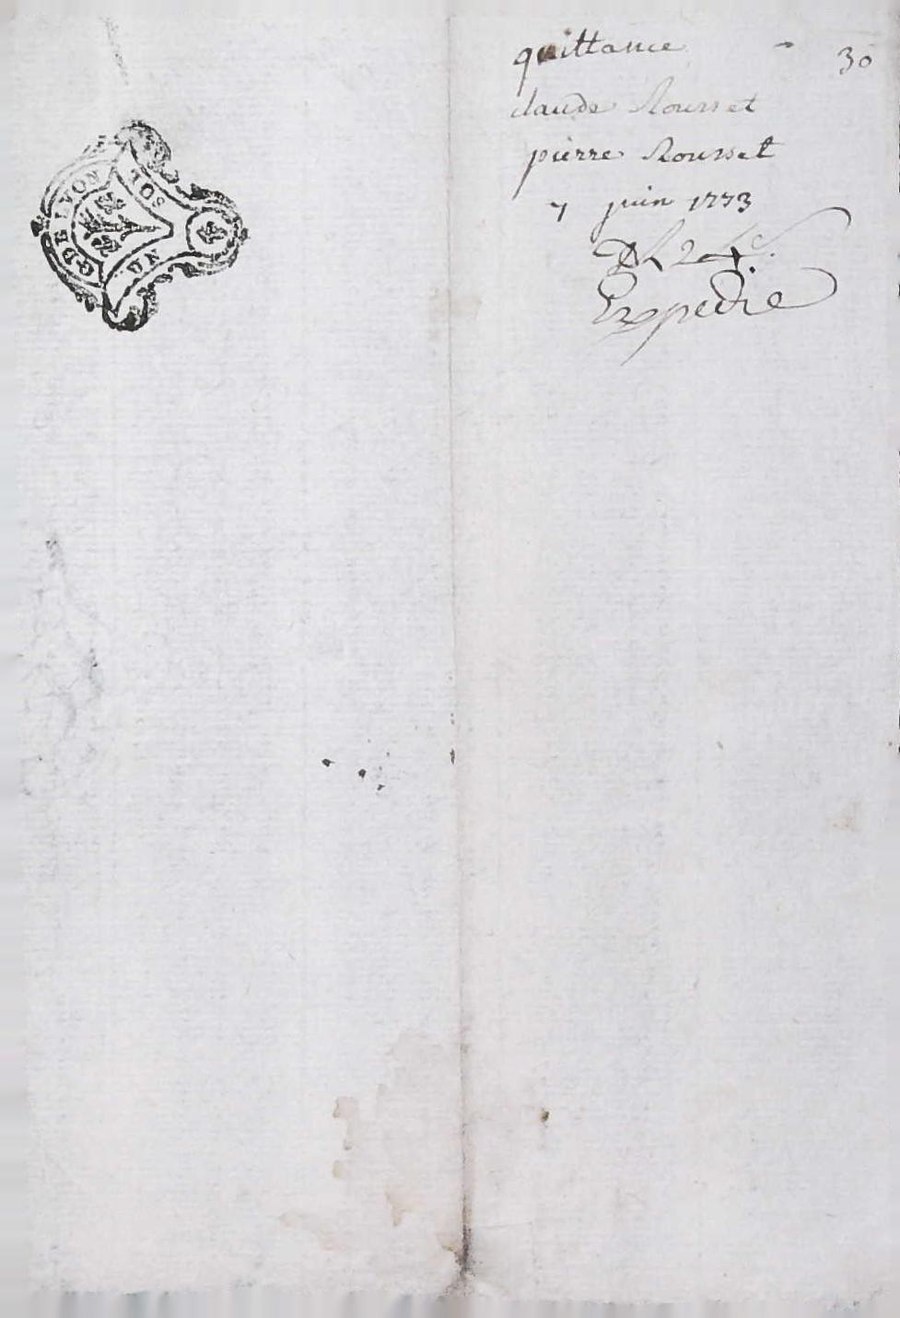 G. DE LYON
UN SOL
quittance - 30
claude Rousset
pierre Rousset
7 juin 1773
Expedie